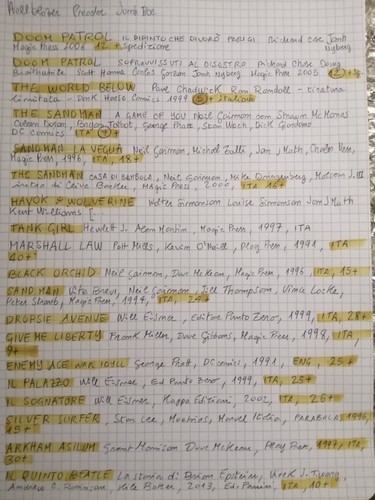 DOOM PATROL IL DIPINTO CHE DIVORÒ PARIGI Richard Case John Nyberg
Magic Press 2006 12 + spedizione
DOOM PATROL SOPRAVVISSUTI AL DISASTRO Richard Case Doug
Braithwaite Scott Hanna Carlos Garzon John Nyberg Magic Press 2005
THE WORLD BELOW Paul Chadwick Ron Randall - tiratura
limitata - Dark Horse Comics 1999 5 italiano
THE SANDMAN A GAME OF YOU Neil Gaiman Shawn McManus
Colleen Doran, Bryan Talbot, George Pratt, Stan Woch, Dick Giordano
DC Comics ITA
SANDMAN LA VEGLIA Neil Gaiman, Michael Zulli, Jon J Muth, Charles Vess,
Magic Press, 1996, ITA, 18+
THE SANDMAN CASA DI BAMBOLA, Neil Gaiman, Mike Dringenberg, Malcolm J. III
intro di Clive Barker, Magic Press, 2000, ITA 16+
HAVOK & WOLVERINE Walter Simonson Louise Simonson Jon J Muth
Kent Williams [
TANK GIRL Hewlett J. Alan Martin, Magic Press, 1997, ITA
MARSHALL LAW Pat Mills, Kevin O'Neill, Play Press, 1991, ITA
40+
BLACK ORCHID Neil Gaiman, Dave McKean, Magic Press, 1996, ITA, 15+
SANDMAN Vite Brevi, Neil Gaiman, Jill Thompson, Vince Locke,
Peter Straub, Magic Press, 1997, ITA, 24+
DROPSIE AVENUE Will Eisner, Editore Punto Zero, 1999, ITA, 28+
GIVE ME LIBERTY Frank Miller, Dave Gibbons, Magic Press, 1998, ITA
9+
ENEMY ACE WAR IDYLL George Pratt, DC comics, 1991, ENG, 25+
IL PALAZZO Will Eisner, Ed Punto Zero, 1999, ITA, 25+
IL SOGNATORE Will Eisner, Kappa Edizioni, 2002, ITA, 26+
SILVER SURFER, Stan Lee, Moebius, Marvel Italia, PARABOLAS 1996,
45+
ARKHAM ASILUM Grant Morrison Dave McKean, Play Press, 1997, ITA,
30+
IL QUINTO BEATLE La storia di Brian Epstein, Vivek J. Tiwary,
Andrew C. Robinson, Kyle Baker, 2013, Ed. Panini, ITA, 10+